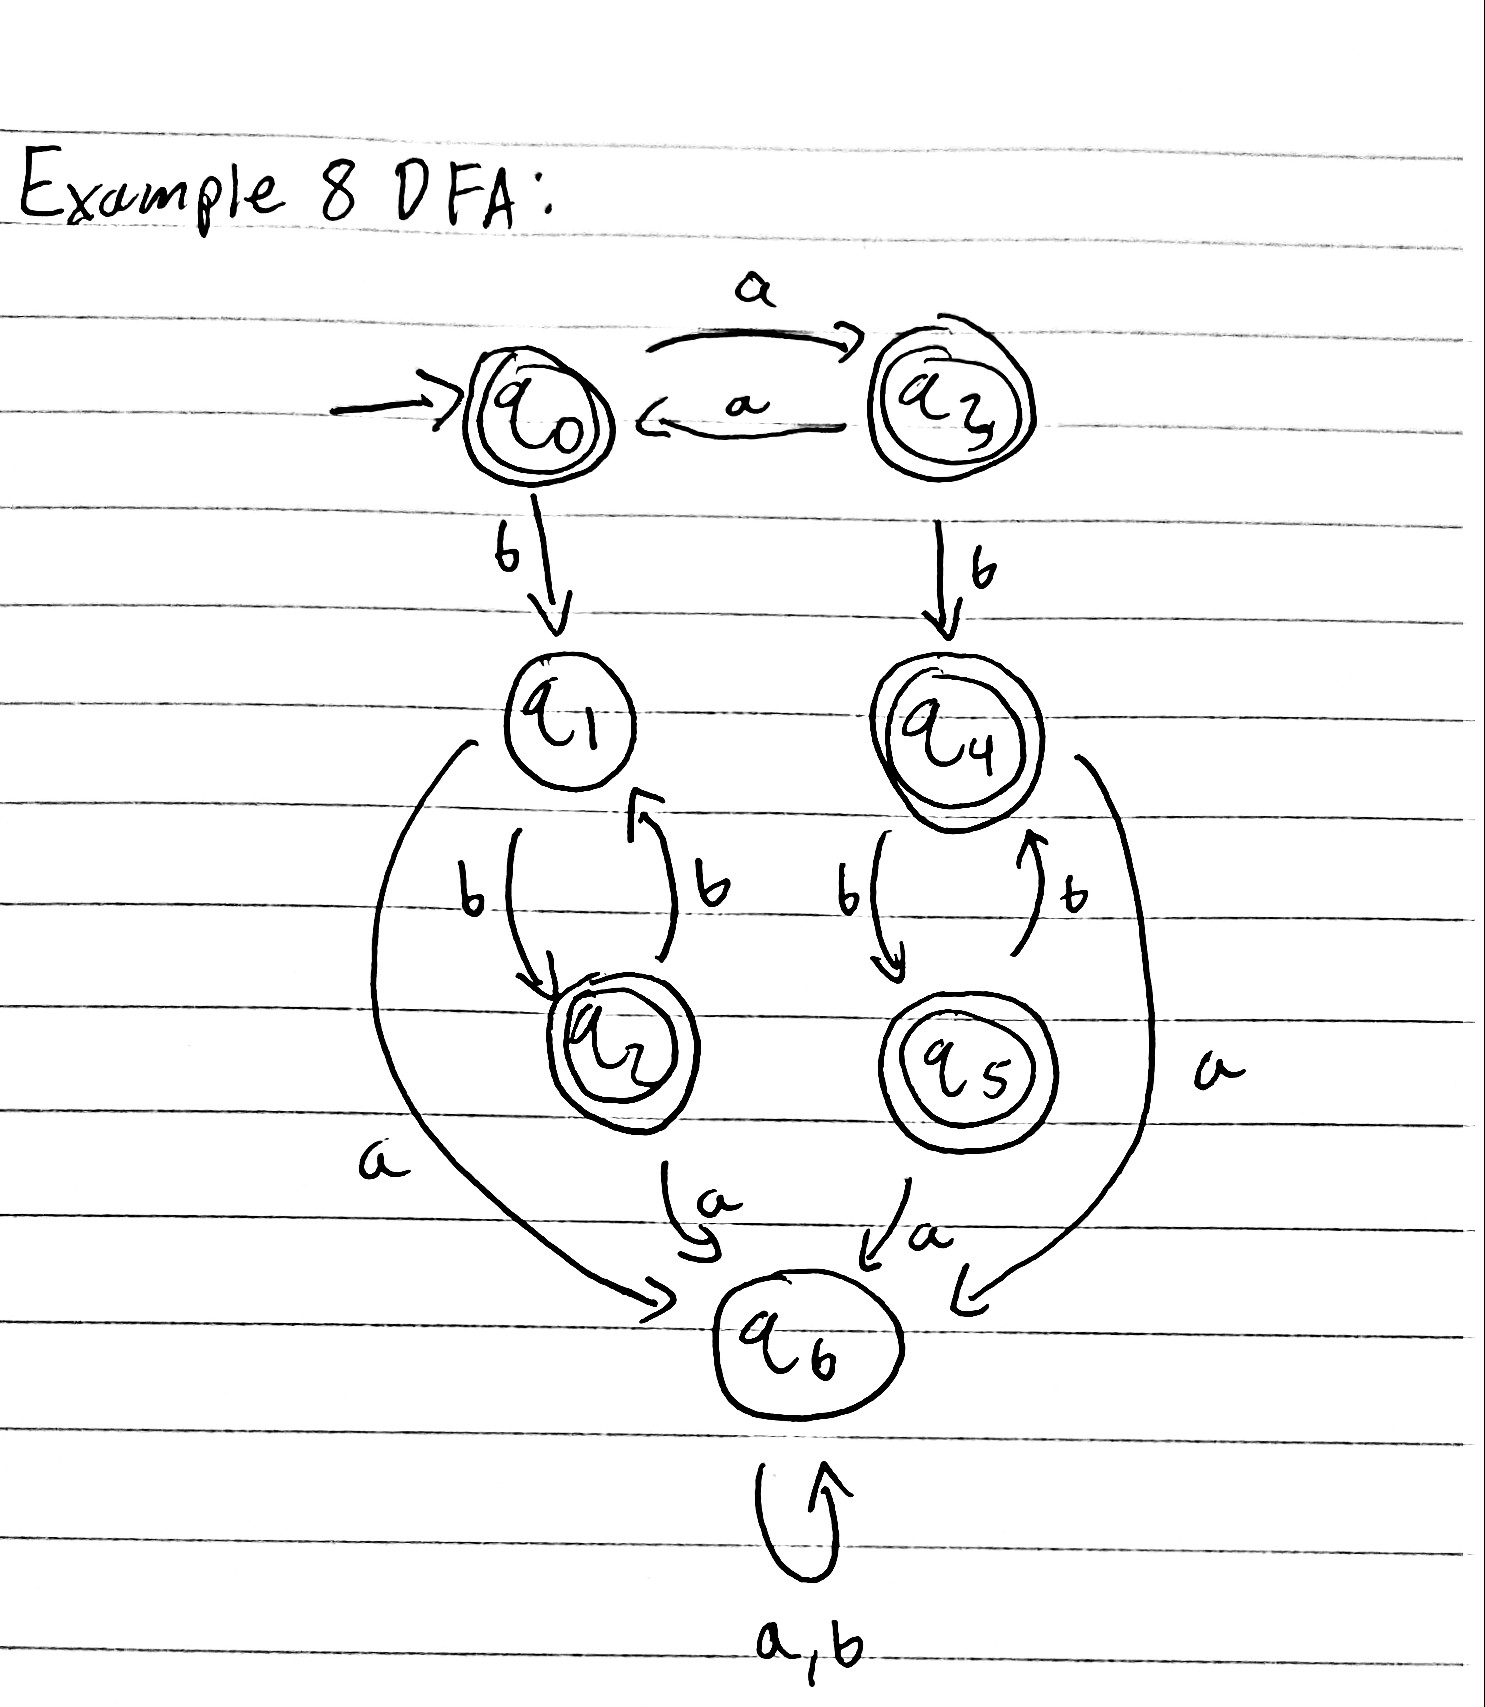 Example 8 DFA:
a
q0 a q3
b b
q1 q4
b b b b
q2 q5
a
a a a
q6
a,b